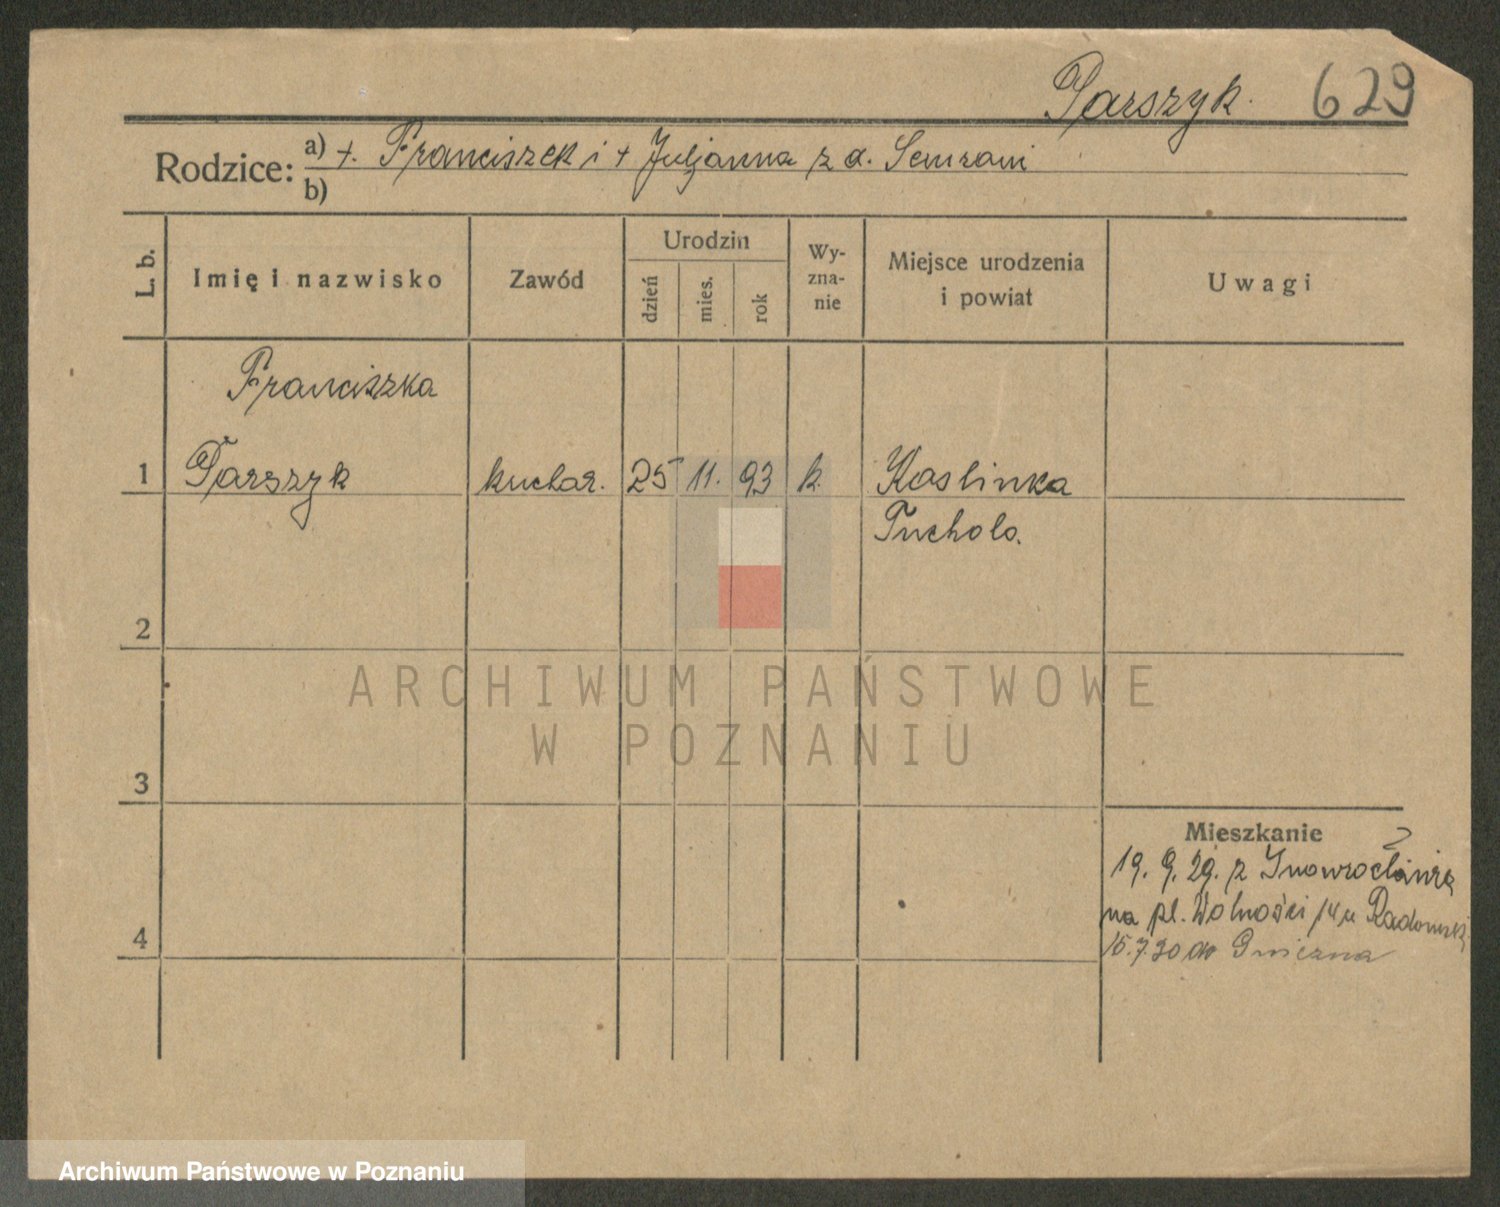 Parszyk. 629
Rodzice: a) +. Franciszek i + Juljanna z d. Semrani
b)
L. b. Imię i nazwisko Zawód Urodzin dzień mies. rok Wy-zna-nie Miejsce urodzenia i powiat Uwagi
Franciszka
1 Parszyk kuchar. 25 11. 93 k. Koslinka
Tuchola.
2
ARCHIWUM PAŃSTWOWE
W POZNANIU
3
Mieszkanie
19. 9. 29. z Inowrocławia
na pl. Wolności 14 u
4
15.7.30 do Gniezna
Archiwum Państwowe w Poznaniu